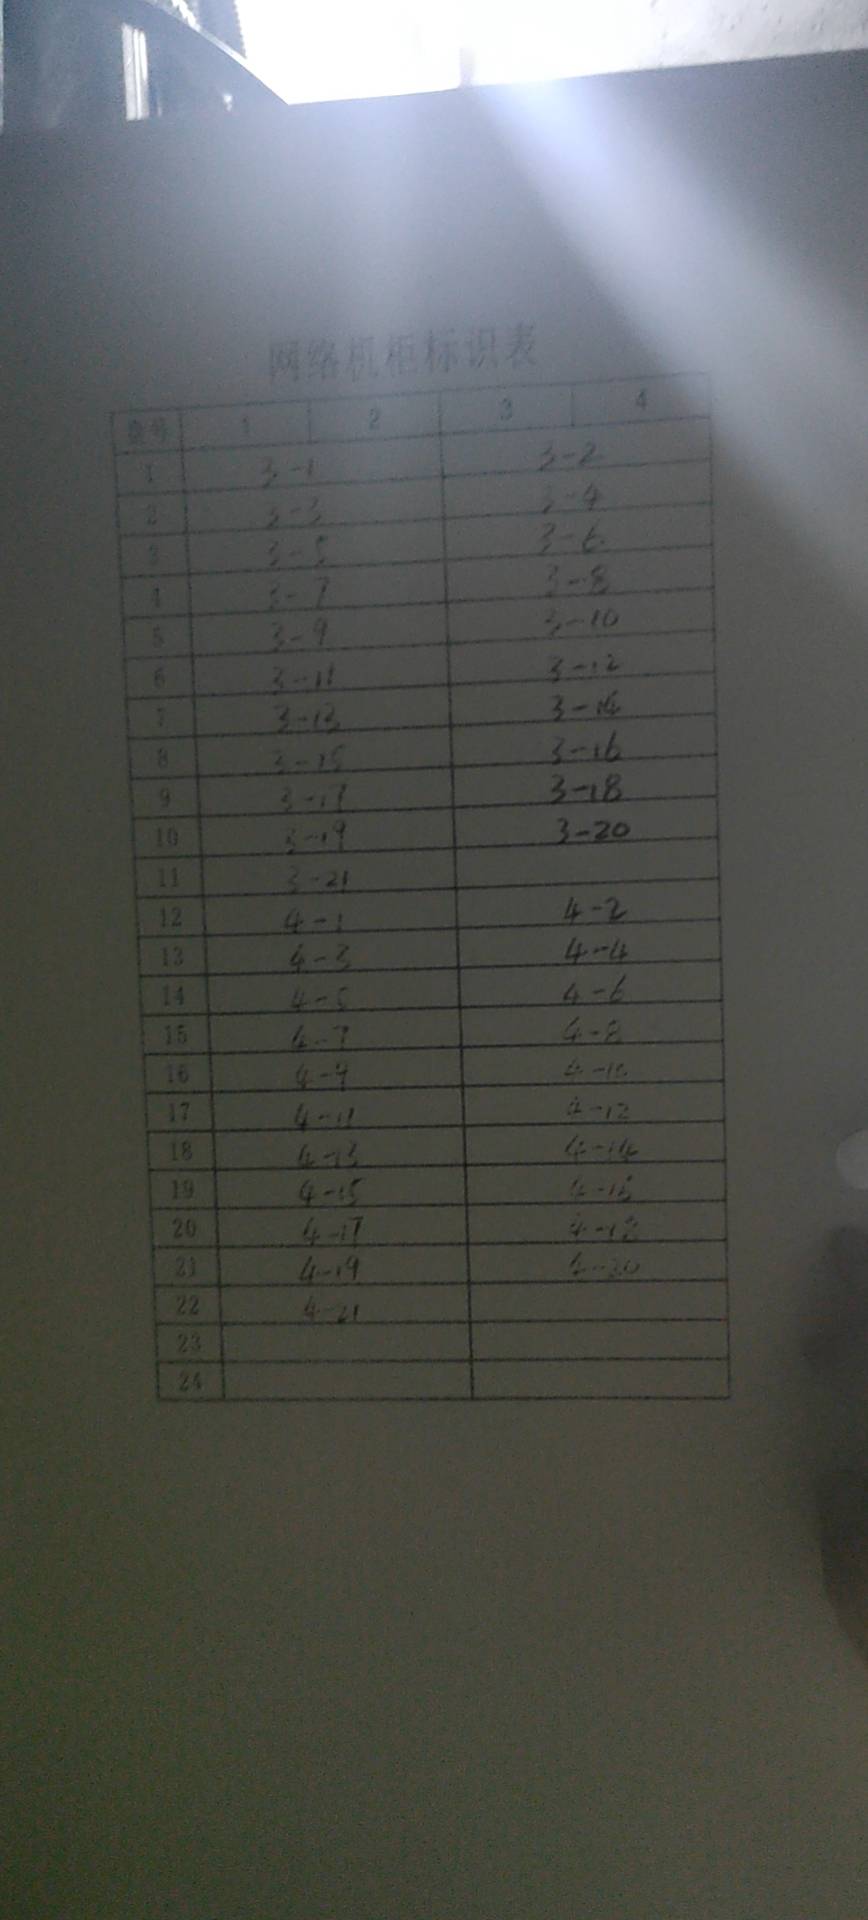 网络机柜标识表
盘号 1 2 3 4
1 3-1 3-2
2 3-3 3-4
3 3-5 3-6
4 3-7 3-8
5 3-9 3-10
6 3-11 3-12
7 3-13 3-14
8 3-15 3-16
9 3-17 3-18
10 3-19 3-20
11 3-21
12 4-1 4-2
13 4-3 4-4
14 4-5 4-6
15 4-7 4-8
16 4-9 4-10
17 4-11 4-12
18 4-13 4-14
19 4-15 4-16
20 4-17 4-18
21 4-19 4-20
22 4-21
23
24